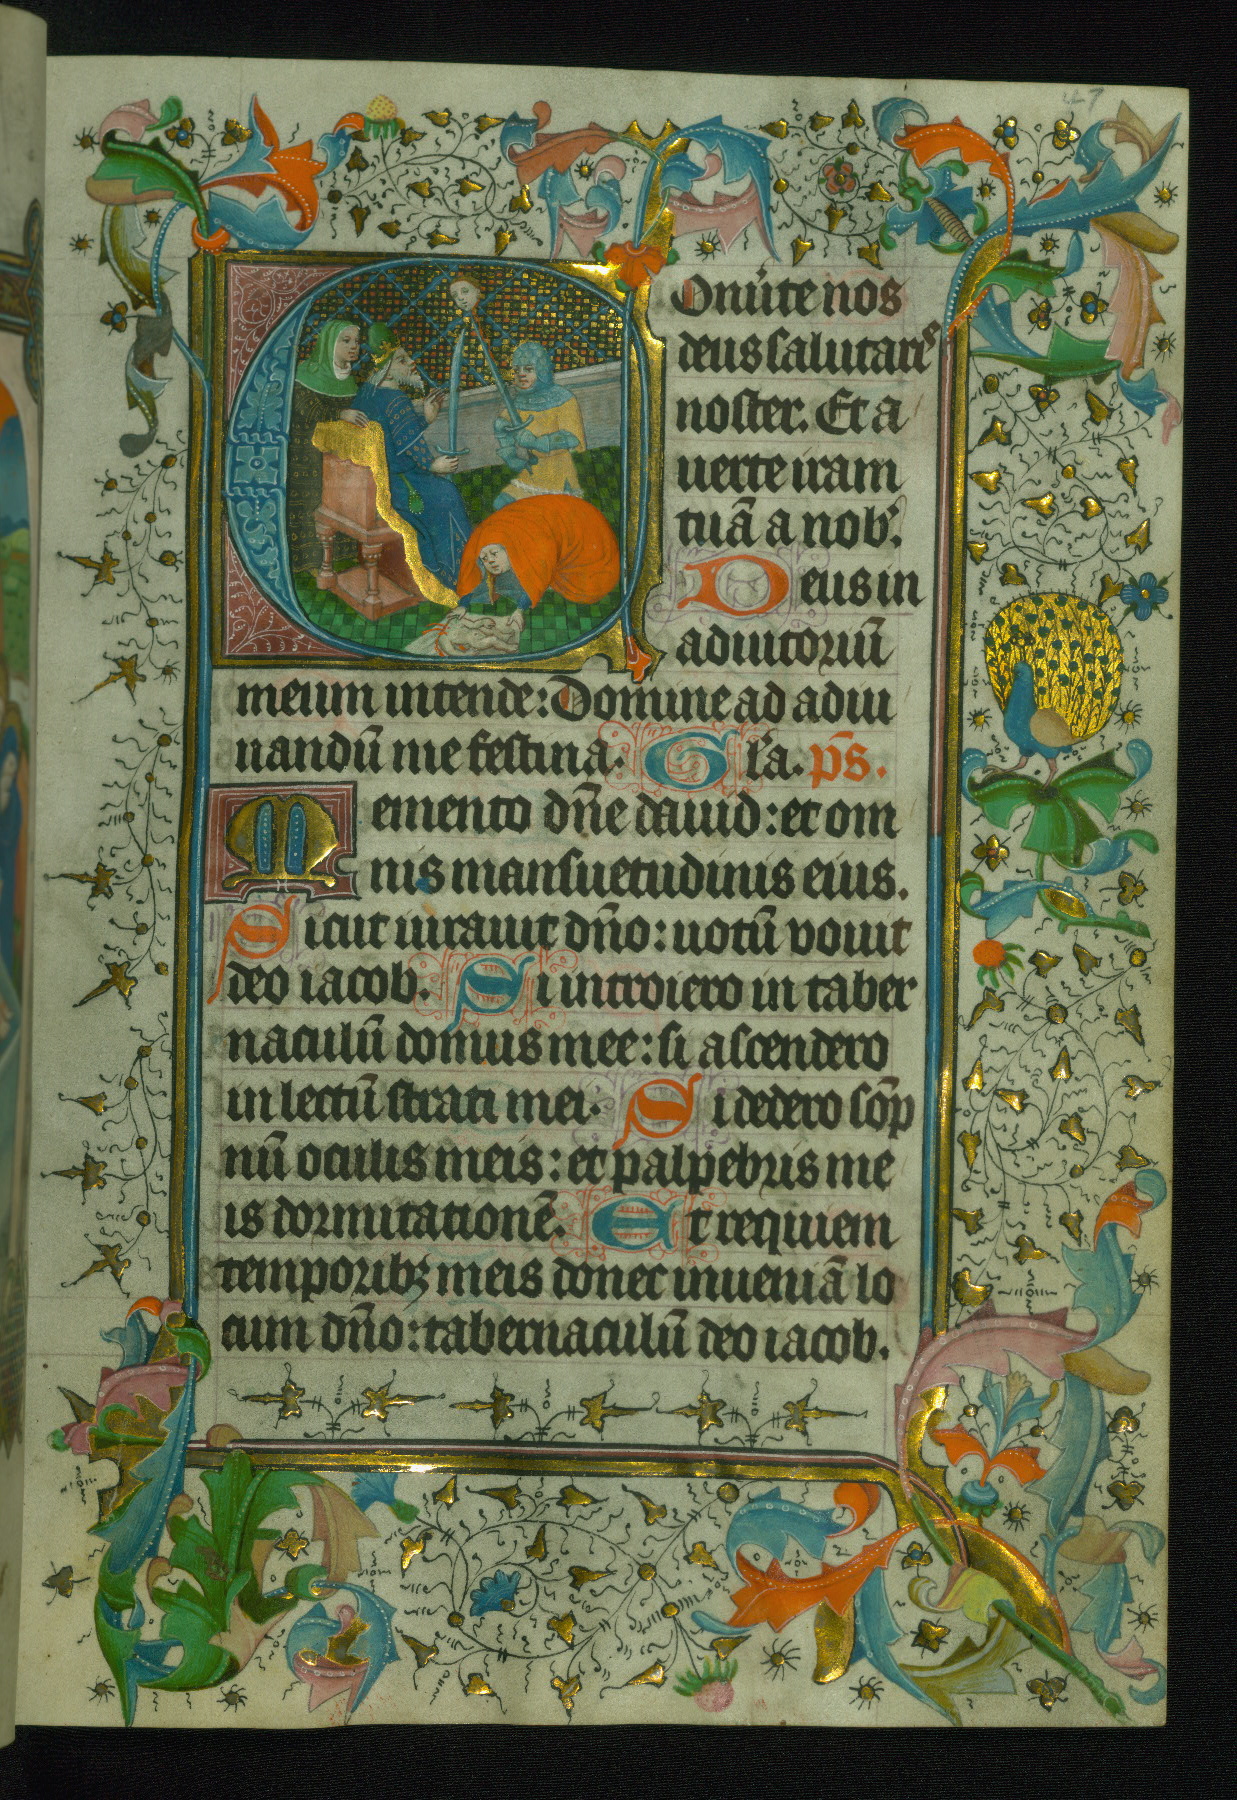 47
Conu͛te nos
deus salutar͛is
noster. Et a
uerte iram
tuā a nob᷒.
Deus in
adiutoriū
meum intende: Domine ad adiu
uandū me festina. Gl͛a. p̄s.
Memento dn̄e dauid: et om
nis mansuetudinis eius.
Sicut iurauit dn̄o: uotū vouit
deo iacob. Si introiero in taber
naculū domus mee: si ascendero
in lectū strati mei. Si dedero sōp
nū oculis meis: et palpebris me
is dormitationē. Et requiem
temporibꝫ meis donec inueniā lo
cum dn̄o: tabernaculū deo iacob.